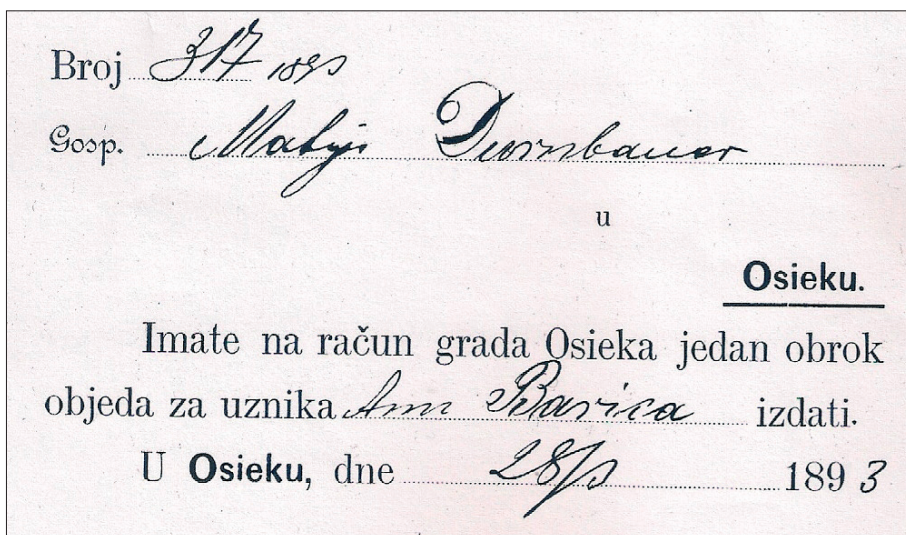 Broj 317 1893
Gosp. Matija Dornbauer
u
Osieku.
Imate na račun grada Osieka jedan obrok
objeda za uznika Barica izdati.
U Osieku, dne 28/3 1893